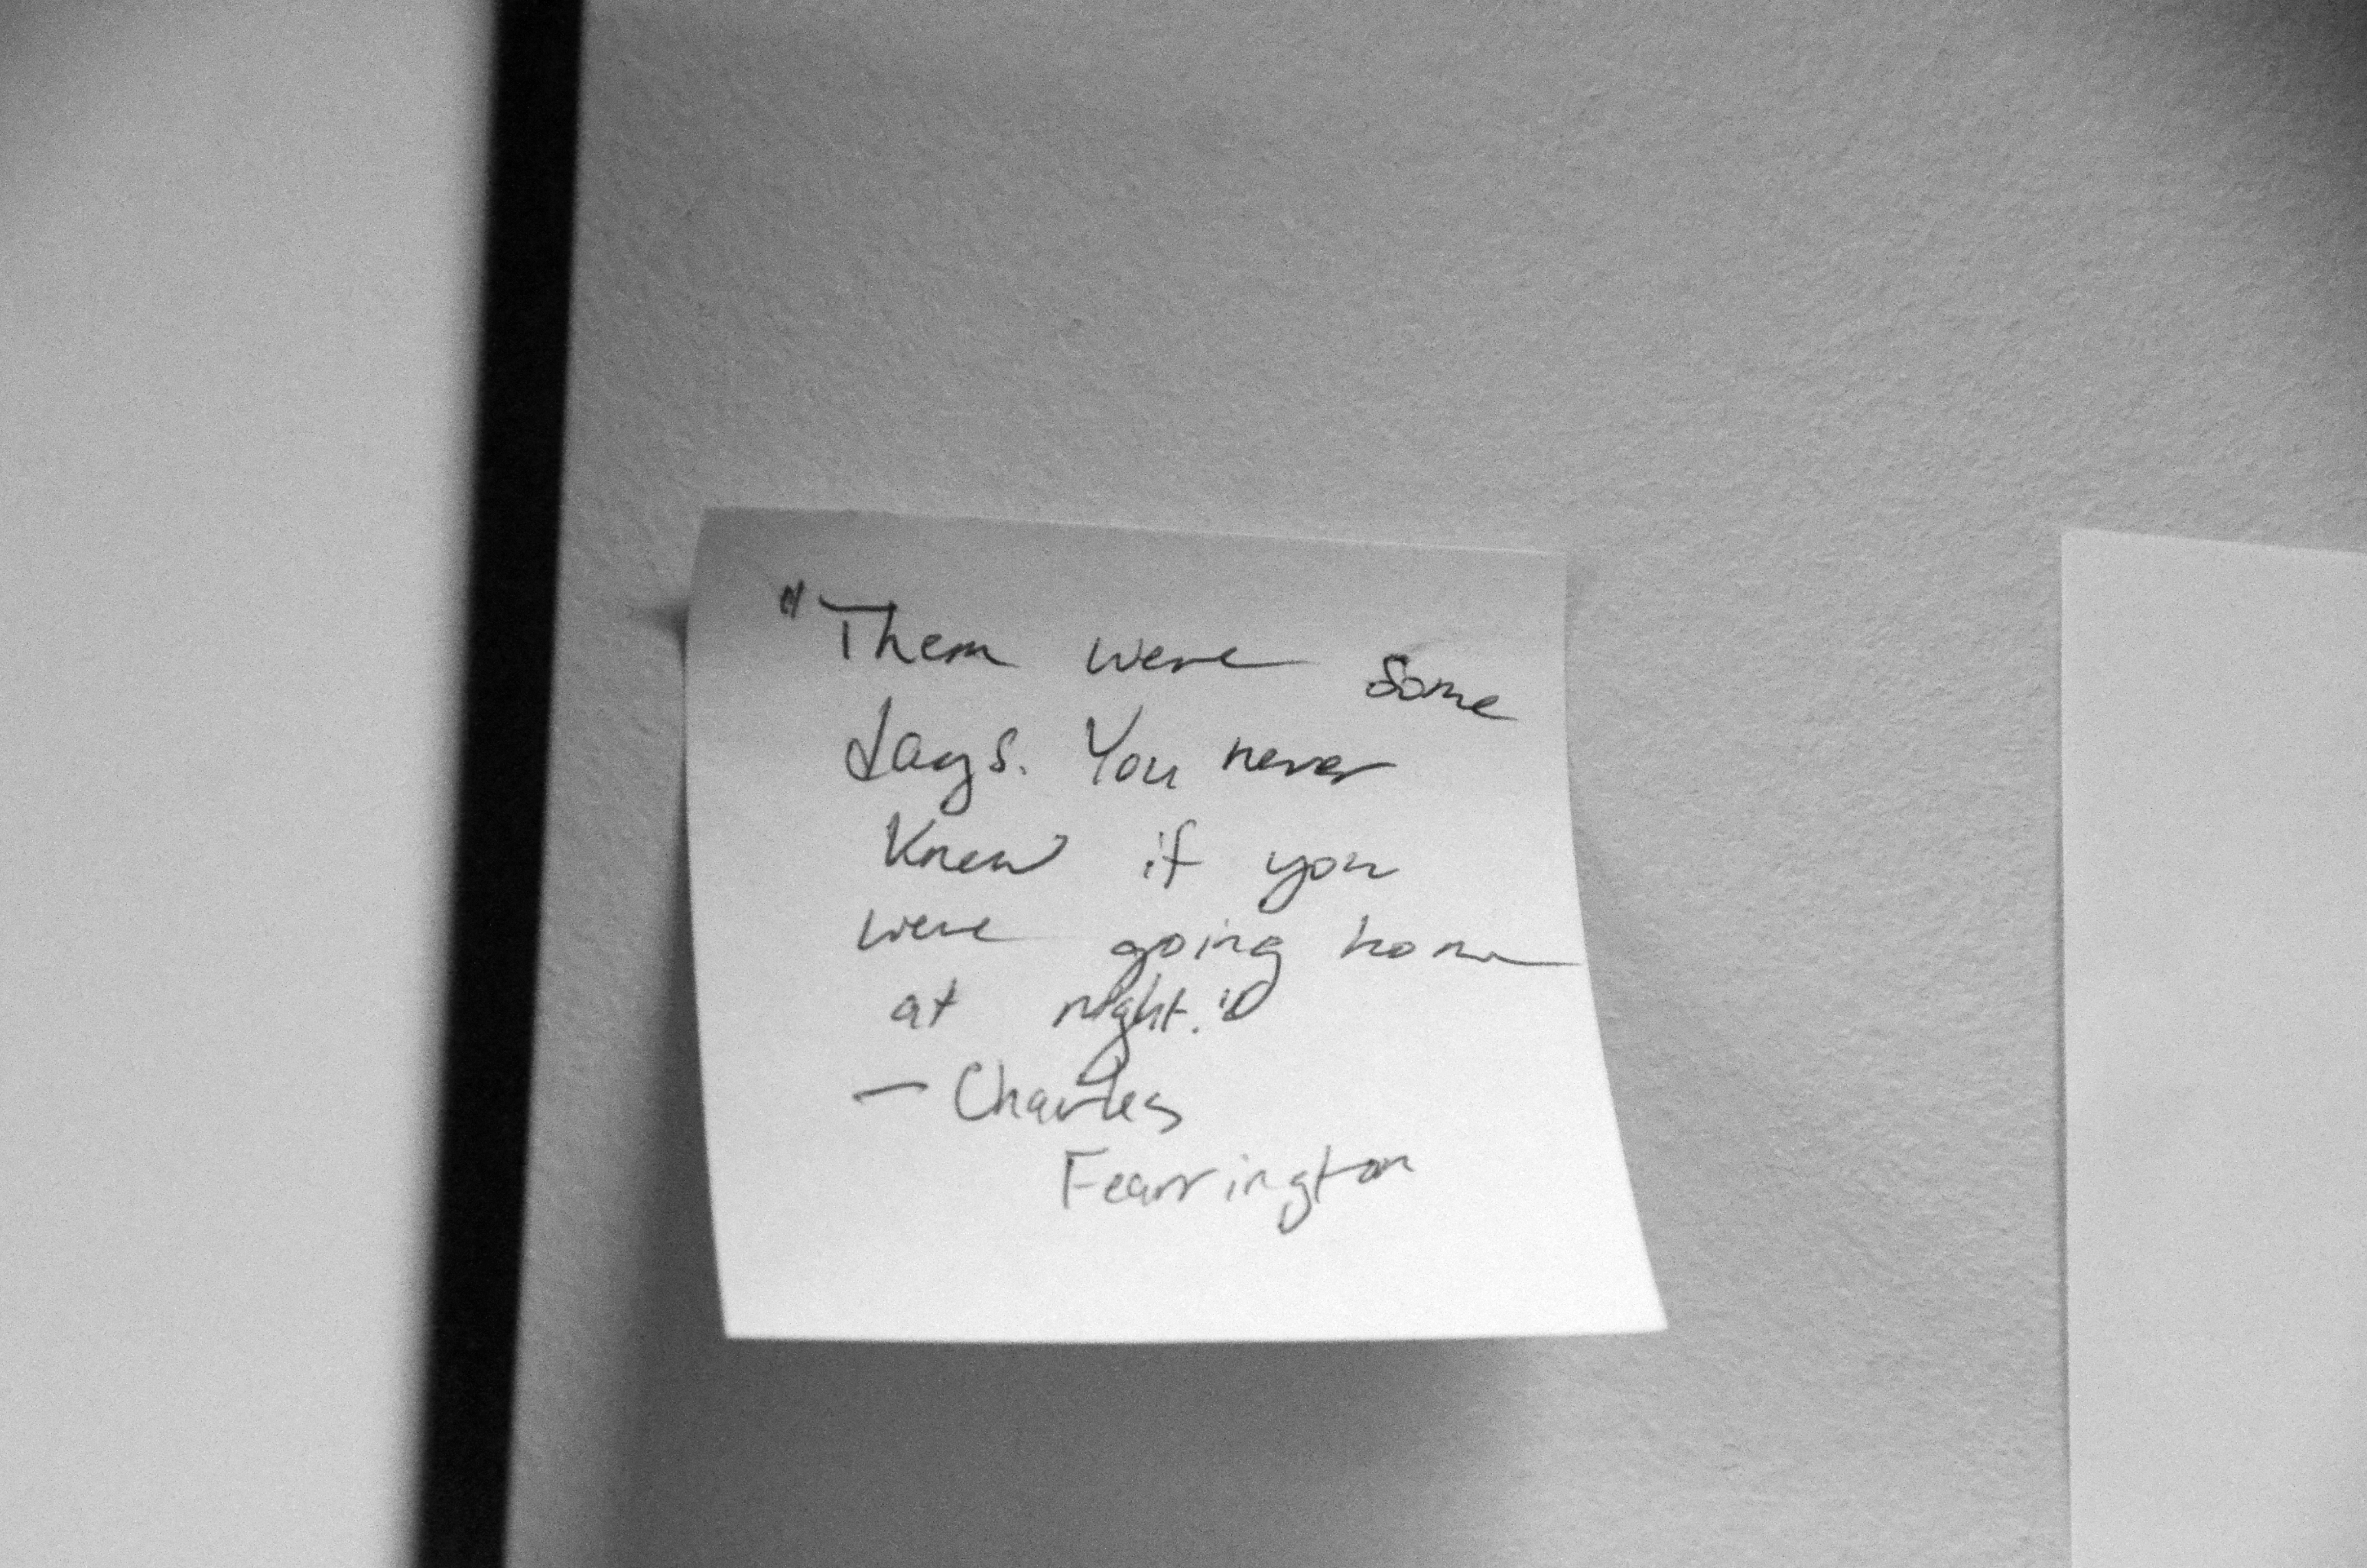 "Them were some
days. You never
knew if you
were going home
at night."
— Charles
Fearrington